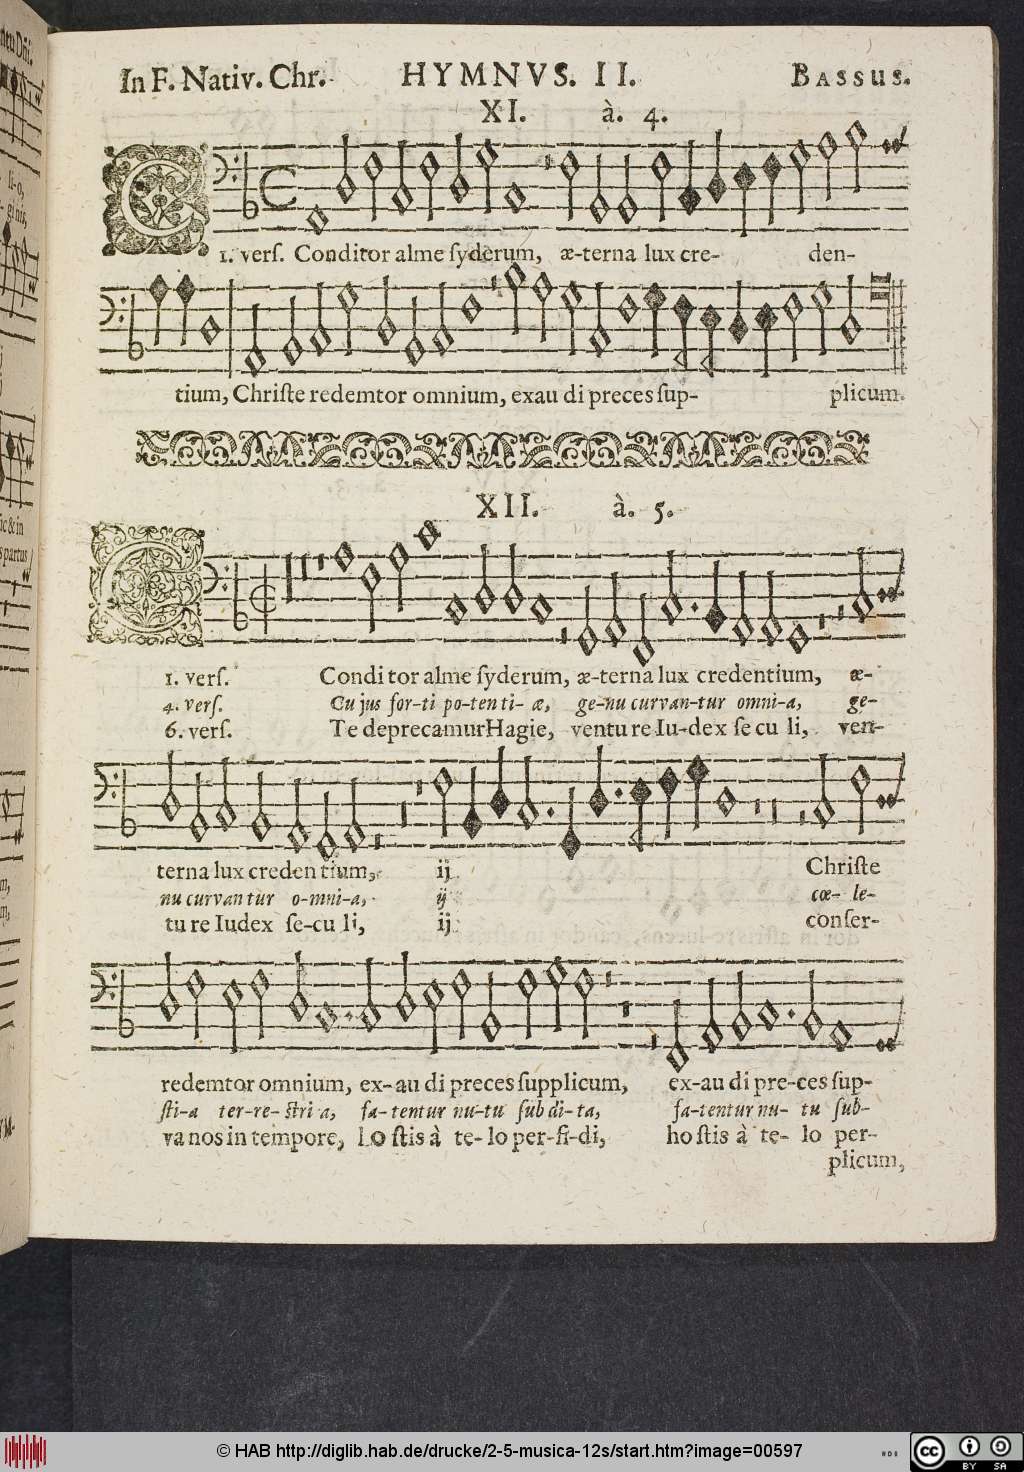 In F. Nativ. Chr. HYMNVS. II. BASSUS.
XI. à. 4.
1. verſ. Conditor alme ſyderum, æ-terna lux cre- den-
tium, Chriſte redemtor omnium, exau di preces ſup- plicum.
XII. à. 5.
1. verſ. Condi tor alme ſyderum, æ-terna lux credentium, æ-
4. verſ. Cu jus for-ti po-tenti- æ, ge-nu curvan-tur omni-a, ge-
6. verſ. Te deprecamur Hagie, ventu re Iu-dex ſe cu li, ven-
terna lux creden tium, ij Chriſte
nu curvan tur o-mni-a, ij cœ- le-
tu re Iudex ſe-cu li, ij conſer-
redemtor omnium, ex-au di preces ſupplicum, ex-au di pre-ces ſup-
ſti-a ter-re-ſtri a, fa-tentur nu-tu ſub di-ta, fa-tentur nu- tu ſub-
va nos in tempore, Ho ſtis à te-lo per-fi-di, ho ſtis à te- lo per-
plicum,
© HAB http://diglib.hab.de/drucke/2-5-musica-12s/start.htm?image=00597
cc BY SA